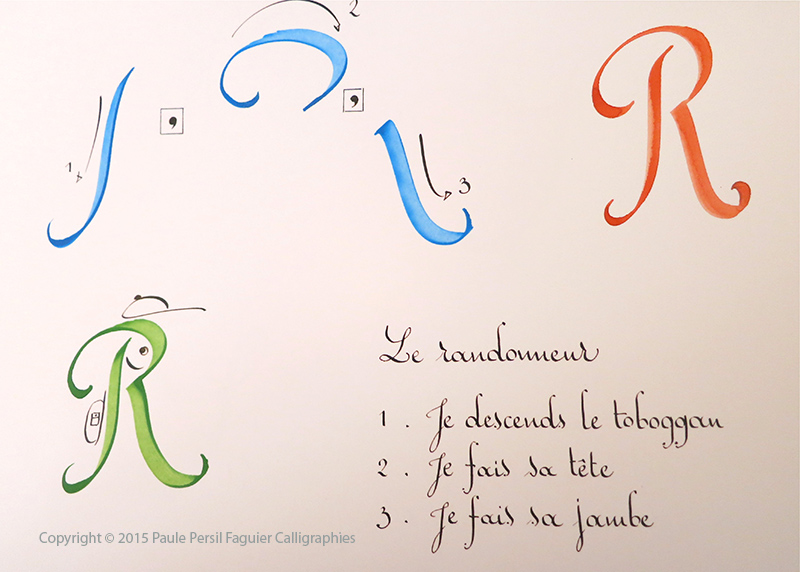 2
,
,
1
3
R
R
Le randonneur
1 . Je descends le toboggan
2 . Je fais sa tête
3 . Je fais sa jambe
Copyright © 2015 Paule Persil Faguier Calligraphies